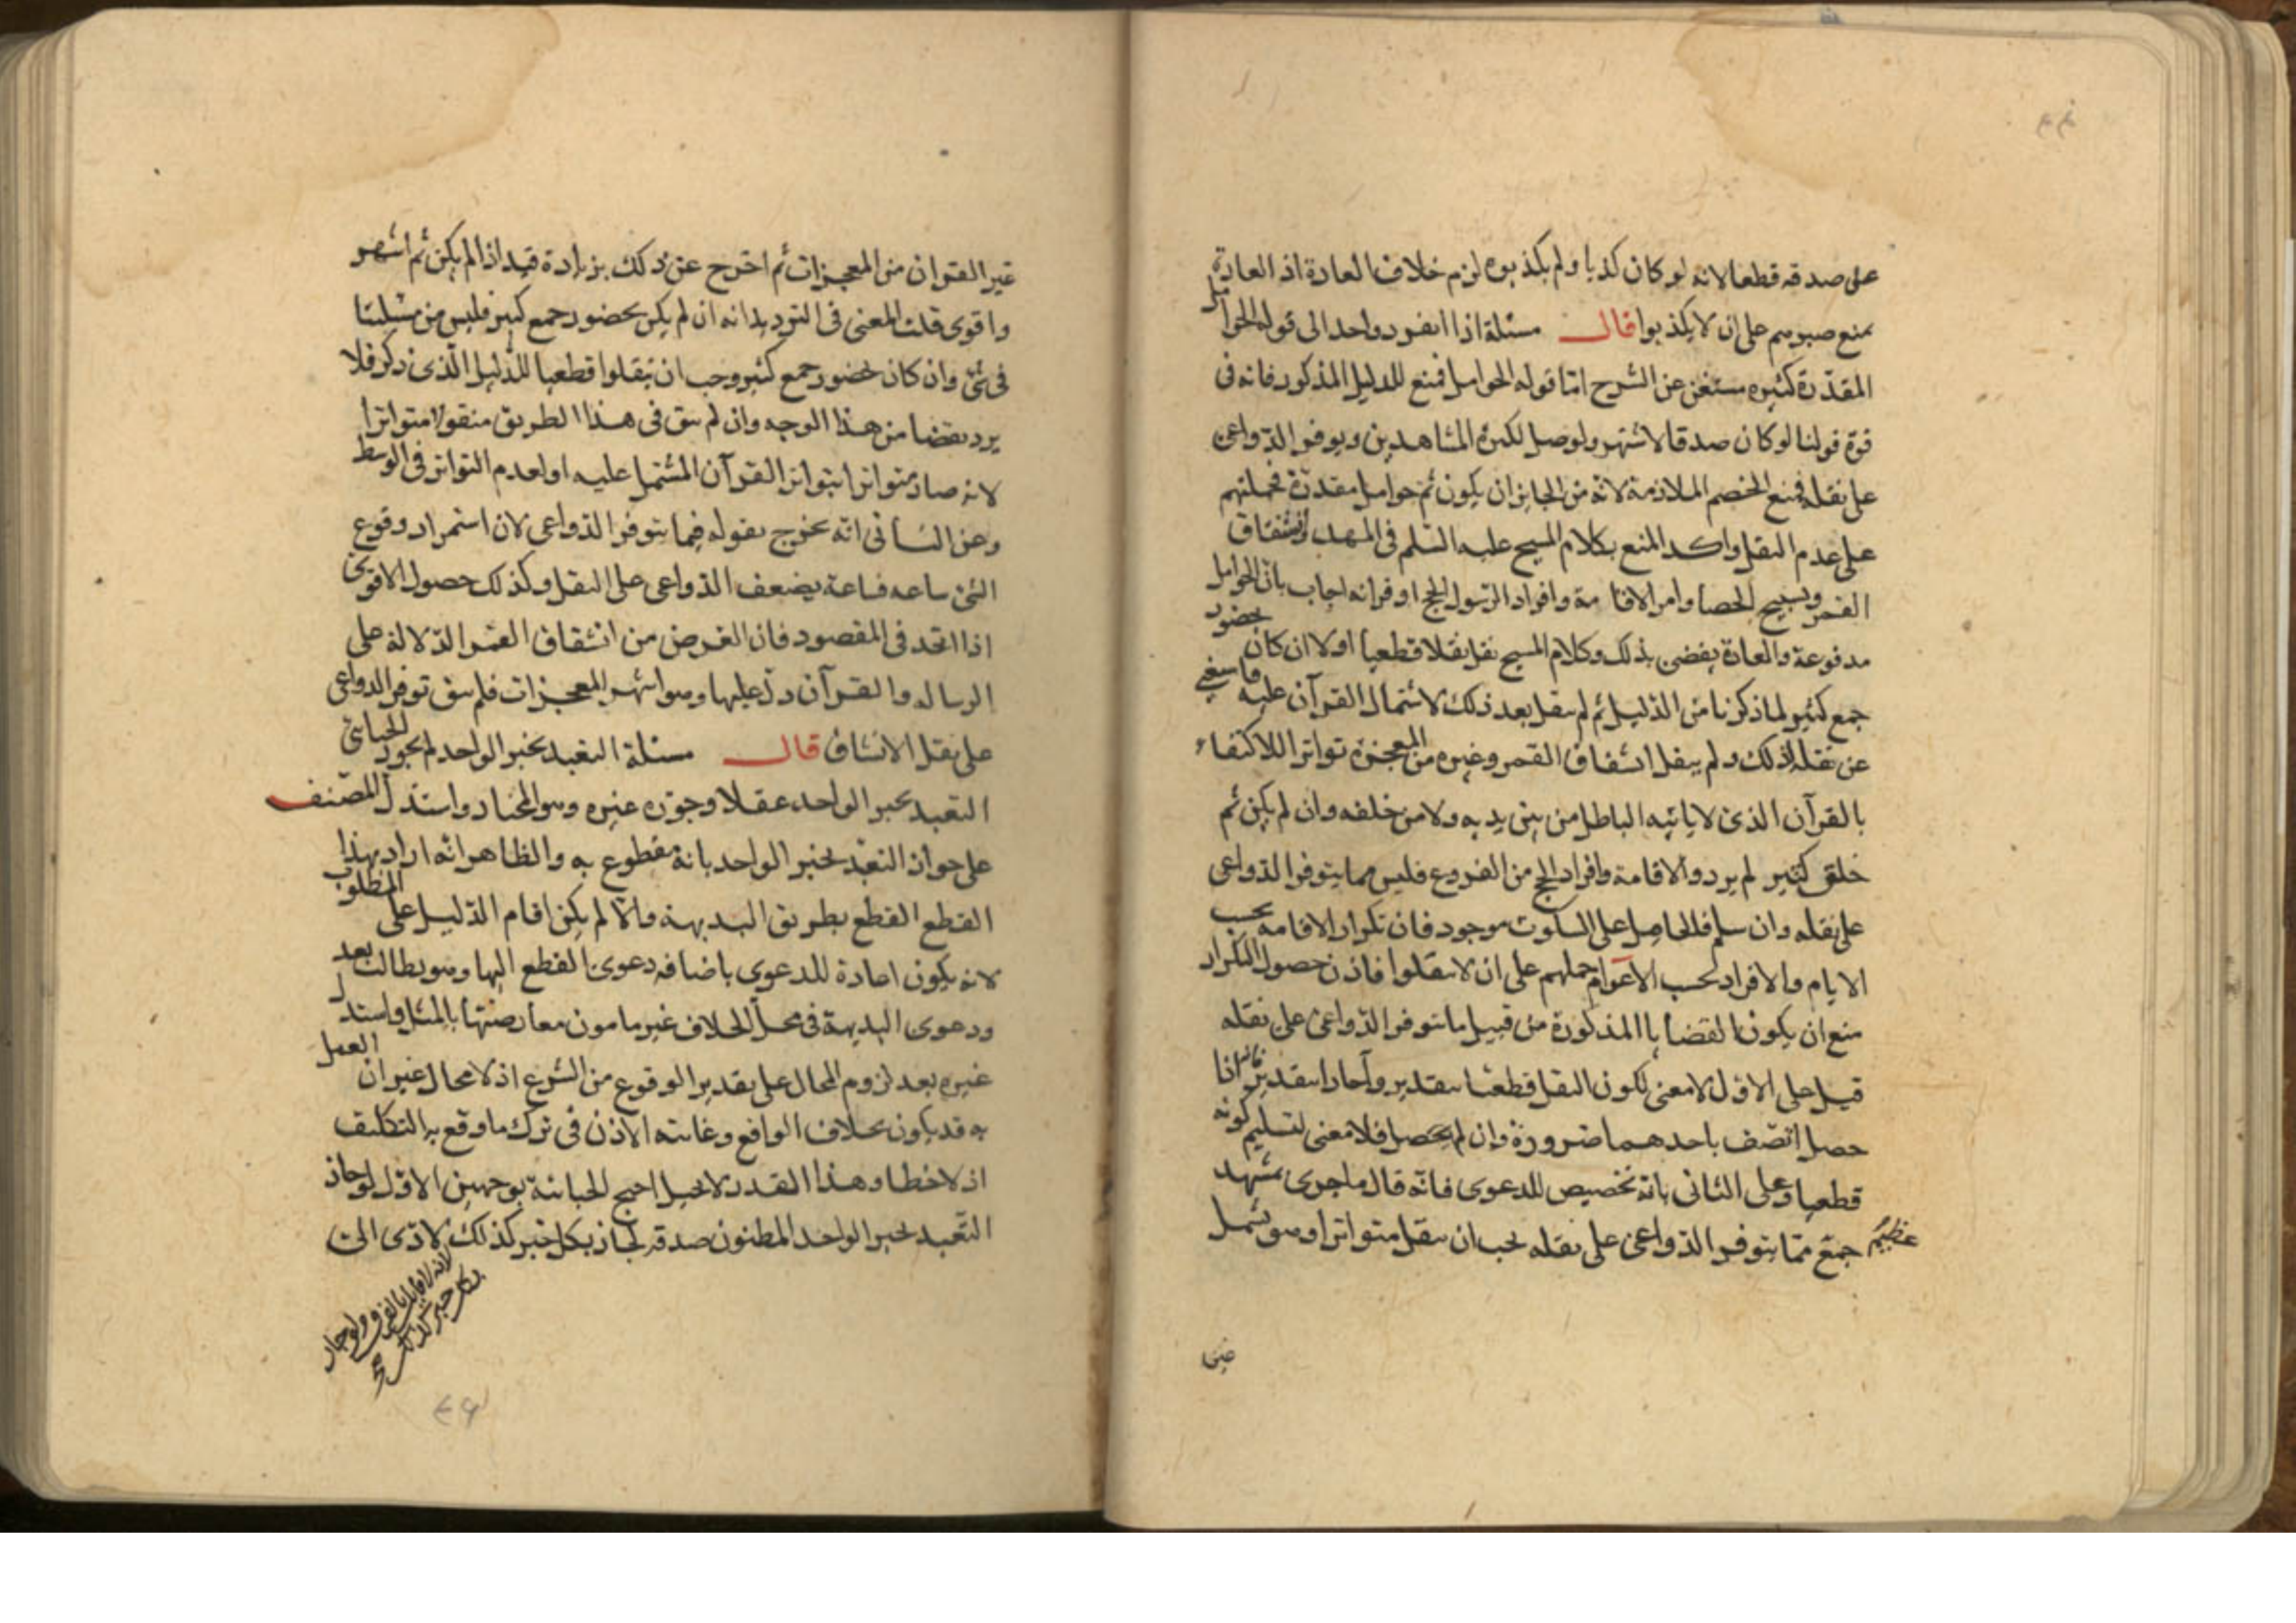 على صدقه قطعا لانه لو كان كذبا ولم يكذبوه لزم خلاف العادة اذ العادة
تمنع صبرهم على ان لا يكذبوا قال مسئلة اذا انفرد واحد الى قوله الحوامل
المقدّرة كثيره مستغن عن الشرح امّا قوله الحوامل فمنع للدليل المذكور فانه فى
قوة قولنا لو كان صدقا لاشتهر ولوصل لكثرة المشاهدين وتوفر الدّواعى
على نقله فمنع الخصم الملازمة لانّه من الجايز ان يكون ثم حوامل مقدرة تحملهم
على عدم النقل واكد المنع بكلام المسيح عليه السّلم فى المهد وانشقاق
القمر وتسبيح الحصا وامر الاقامة وافراد الرّسول الحج او قرانه اجاب بانّ الحوامل
مدفوعة والعادة يقضى بذلك وكلام المسيح نقل نقلا قطعيا اولا ان كان بحضور
جمع كثير لما ذكرنا من الدّليل ثم لم ينقل بعد ذلك لاشتمال القرآن عليه فاستغنى
عن نقله لذلك ولم ينقل انشقاق القمر وغيره من المعجزة تواترا للاكتفاء
بالقرآن الذى لا يأتيه الباطل من بين يديه ولا من خلفه وان لم يكن ثم
خلق كثير لم يرد والاقامة وافراد الحج من الفروع فليس مما يتوفر الدّواعى
على نقله وان سلم فالحامل على السكوت موجود فان تكرار الاقامة بحسب
الايام والافراد بحسب الاعوام حملهم على ان لا ينقلوا فاذن حصول التكرار
منع ان يكون القضايا المذكورة من قبيل ما يتوفر الدّواعى على نقله
قيل على الاوّل لا معنى لكون النقل قطعيّا بتقدير وآحادا بتقدير فانه اذا
حصل اتّصف باحدهما ضرورة وان لم يحصل فلا معنى لتسليم كونه
قطعيا وعلى الثانى بانّه تخصيص للدعوى فانّه قال ما جرى بمشهد
عظيم جمع ممّا يتوفر الدّواعى على نقله يجب ان ينقل متواترا وهو يشمل
غير القرآن من المعجزات ثم اخرج عن ذلك بزيادة قيد اذا لم يكن ثم اشهر
واقوى قلت المعنى فى الترديد انه ان لم يكن بحضور جمع كثير فليس من مسئلتنا
فى شئ وان كان بحضور جمع كثير وجب ان ينقلوا قطعيا للدّليل الّذى ذكر فلا
يرد نقضا من هذا الوجه وان لم يبق فى هذا الطريق منقولا متواترا
لانه صار متواترا بتواتر القرآن المشتمل عليه او لعدم التواتر فى الوسط
وعن الثانى انّه يخرج بقوله فيما يتوفر الدّواعى لان استمرار وقوع
الشئ ساعة فساعة يضعف الدّواعى على النقل وكذلك حصول الاقوى
اذا اتحد فى المقصود فان الغرض من انشقاق القمر الدّلالة على
الرسالة والقرآن دلّ عليها وهو اشهر المعجزات فلم يبق توفر الدواعى
على نقل الانشاق قال مسئلة التعبد بخبر الواحد لم يجوز الجبائى
التعبد بخبر الواحد عقلا وجوّزه غيره وهو المختار واستدلّ المصنف
على جواز التعبّد بخبر الواحد بانّه مقطوع به والظاهر انّه اراد بهذا
القطع القطع بطريق البديهة والّا لم يكن اقام الدّليل على المطلوب
لانه يكون اعادة للدعوى باضافة دعوى القطع اليها وهو يطالب بعد
ودعوى البديهة فى محل الخلاف غير مامون معارضتها بالمثل واستدل
غيره بعد لزوم المحال على تقدير الوقوع من الشرع اذ لا محال غير ان العمل
به قد يكون بخلاف الواقع وغايته الاذن فى ترك ما وقع به التكليف
اذ لاخطا وهذا القدر لا يحيل احتج الجبائية بوجهين الاوّل لو جاز
التّعبد بخبر الواحد المظنون صدقه لجاز بكل خبر كذلك لادّى الى
لانه لا قايل بالفرق ولو جاز
بكل خبر كذلك صح